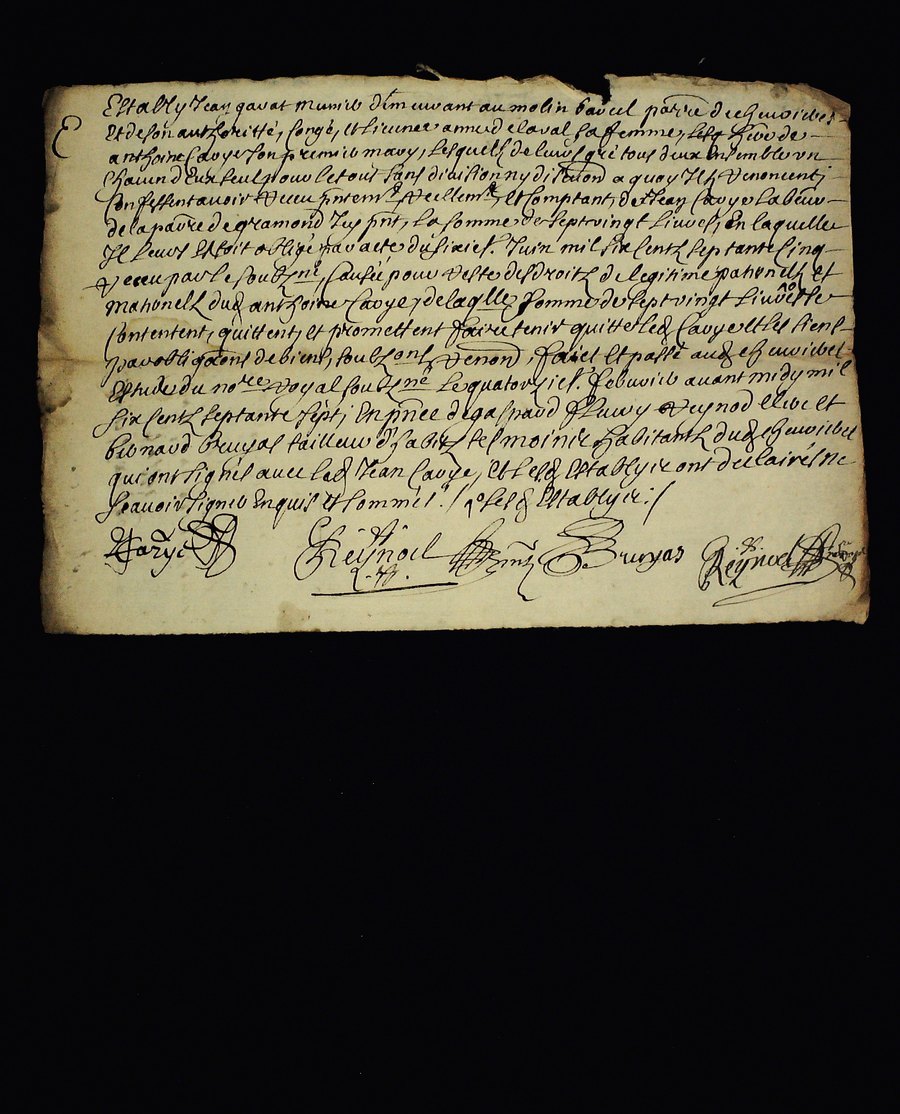 Estably Jean gavat munier demeurant au molin parre de chevrieres
Et de son authoritté, congé, et licence anne delaval sa femme, vefve de
anthoine Caryе son premier mary, lesquels de leurs gré tous deux ensemble un
chacun d'eux seul pour le tout sans division ny discuon a quoy Ilz renoncent,
Confessent avoir receu pntemt Reellemt, et Comptant, de Jean Carye labour
de la parre de gramond Icy pnt, la somme de sept vingt livres, En laquelle
Il leurs Estoit obligé par acte du sixies. Juin mil six Centz septante Cinq
receu par le soubzné, Causée pour reste des droitz de legitime paternelz et
maternelz dud anthoine Carye, de laqlle somme de sept vingt livres Ilz se
Contentent, quittent, et promettent faire tenir quitte led Carye et les siens
par obligaons de biens, soubzons, renonõ, faict et passé aud chevrieres
Estude du nore royal soubzné le quatorsies. febvrier avant midy mil
six Centz septante sept, En pnce de gaspard fleury Reynod clerc et
bernard bruyas tailleur d'habitz tesmoincz habitantz dud chevrieres
qui ont signés avec led Jean Carye, et lesd Establyz ont declairés ne
scavoir signer Enquis et sommés ./ lesd Establyz ./
Carye Reynod Bruyas Reynod